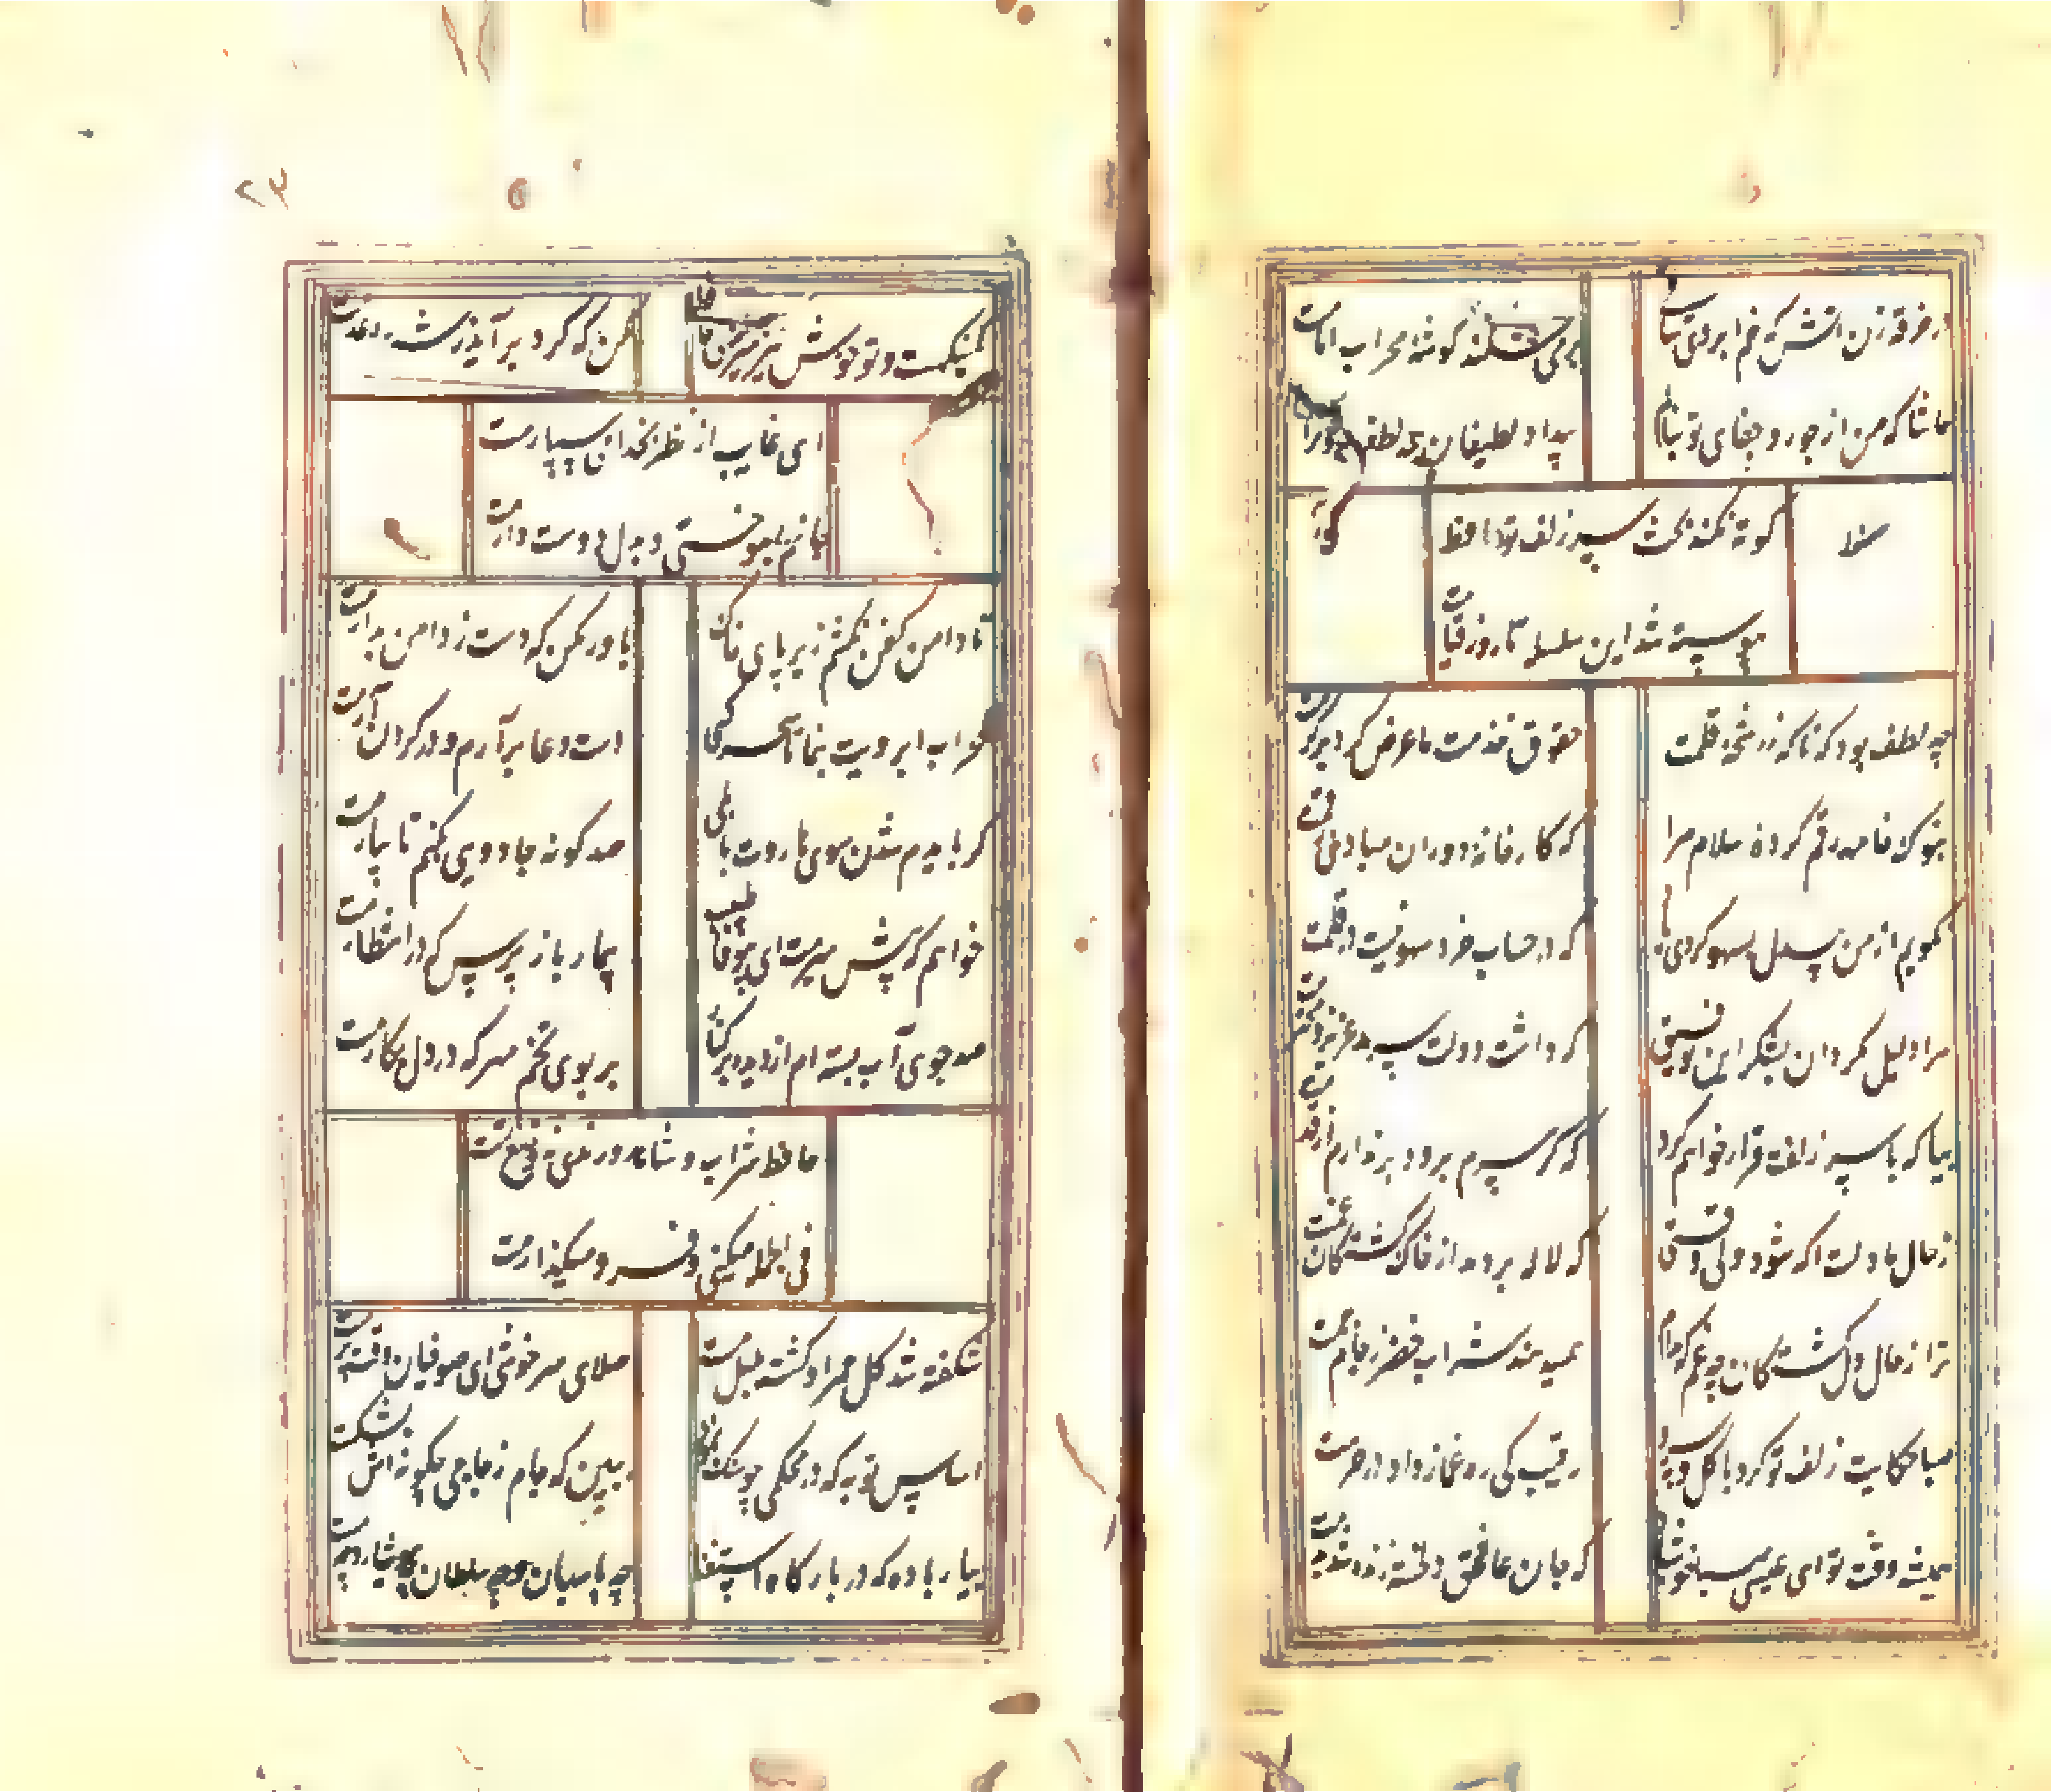 در خرقه زن آتش که خم ابروی ساقی
بر می شکند گوشه محراب امامت
حاشا که من از جور و جفای تو بنالم
بیداد لطیفان همه لطفست و کرامت
کوته نکند بحث سر زلف تو حافظ
پیوسته شد این سلسله تا روز قیامت
چه لطف بود که ناگاه رشحه قلمت
حقوق خدمت ما عرض کرد بر کرمت
بنوک خامه رقم کرده سلام مرا
که کارخانه دوران مباد بی رقمت
نگویم از من بیدل بسهو کردی یاد
که در حساب خرد سهو نیست در قلمت
مرا ذلیل مگردان بشکر این توفیق
که داشت دولت سرمد عزیز و محترمت
بیا که با سر زلفت قرار خواهم کرد
که گر سرم برود برندارم از قدمت
ز حال ما دلت آگه شود ولی وقتی
که لاله بردمد از خاک کشتگان غمت
ترا ز حال دل خستگان چه غم که مدام
همی دهند شراب خضر ز جام جمت
صبا حکایت زلف تو کرد با گل
رقیب کی ره غماز داد در حرمت
همیشه وقت تو ای عیسی صبا خوش باد
که جان عاشق دلخسته زنده شد بدمت
۲۳
کمین گهست و تو خوش تیز میروی
مکن که گرد برآید ز شه ره عدمت
ای غایب از نظر بخدا می سپارمت
جانم بسوختی و بدل دوست دارمت
تا دامن کفن نکشم زیر پای خاک
باور مکن که دست ز دامن بدارمت
محراب ابرویت بنما تا سحرگهی
دست دعا برآرم و در گردن آرمت
گر بایدم شدن سوی هاروت بابلی
صد گونه جادویی بکنم تا بیارمت
خواهم که پیش میرمت ای بیوفا طبیب
بیمار باز پرس که در انتظارمت
صد جوی آب بسته ام از دیده بر کنار
بر بوی تخم مهر که در دل بکارمت
حافظ شراب و شاهد و رندی نه وضع تست
فی الجمله میکنی و فرو میگذارمت
شکفته شد گل حمرا و گشت بلبل مست
صلای سرخوشی ای صوفیان
اساس توبه که در محکمی چو سنگ نمود
ببین که جام زجاجی چگونه اش بشکست
بیار باده که در بارگاه استغنا
چه پاسبان و چه سلطان چه هشیار و چه مست